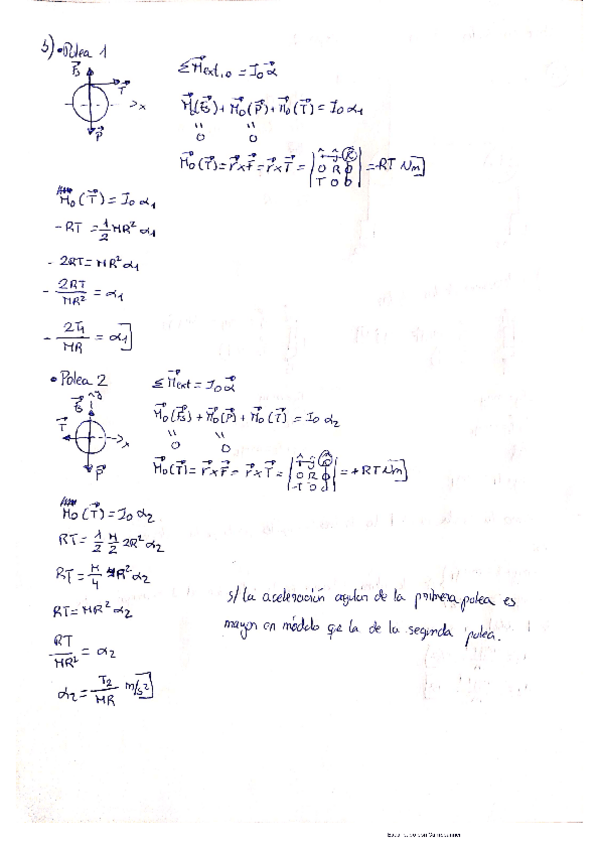 b) • Polea 1
F⃗s
T⃗
x
P⃗
ΣM⃗ext,o = Io α⃗
M⃗o(F⃗s) + M⃗o(P⃗) + M⃗o(T⃗) = Io α1
0 0
M⃗o(T⃗) = r⃗ x F⃗ = r⃗ x T⃗ = | i j k | 0 R 0 | T 0 0 | = -RT Nm
M⃗o(T⃗) = Io α1
-RT = 1/2 MR² α1
- 2RT = MR² α1
- 2RT/MR² = α1
- 2T1/MR = α1
• Polea 2
y
F⃗s
T⃗
x
P⃗
ΣM⃗ext = Io α⃗
M⃗o(F⃗s) + M⃗o(P⃗) + M⃗o(T⃗) = Io α2
0 0
M⃗o(T⃗) = r⃗ x F⃗ = r⃗ x T⃗ = | i j k | 0 R 0 | -T 0 0 | = +RT Nm
M⃗o(T⃗) = Io α2
RT = 1/2 M/2 2R² α2
RT = M/4 R² α2
RT = MR² α2
RT/MR² = α2
α2 = T2/MR m/s²
s/ La aceleración angular de la primera polea es
mayor en módulo que la de la segunda polea.